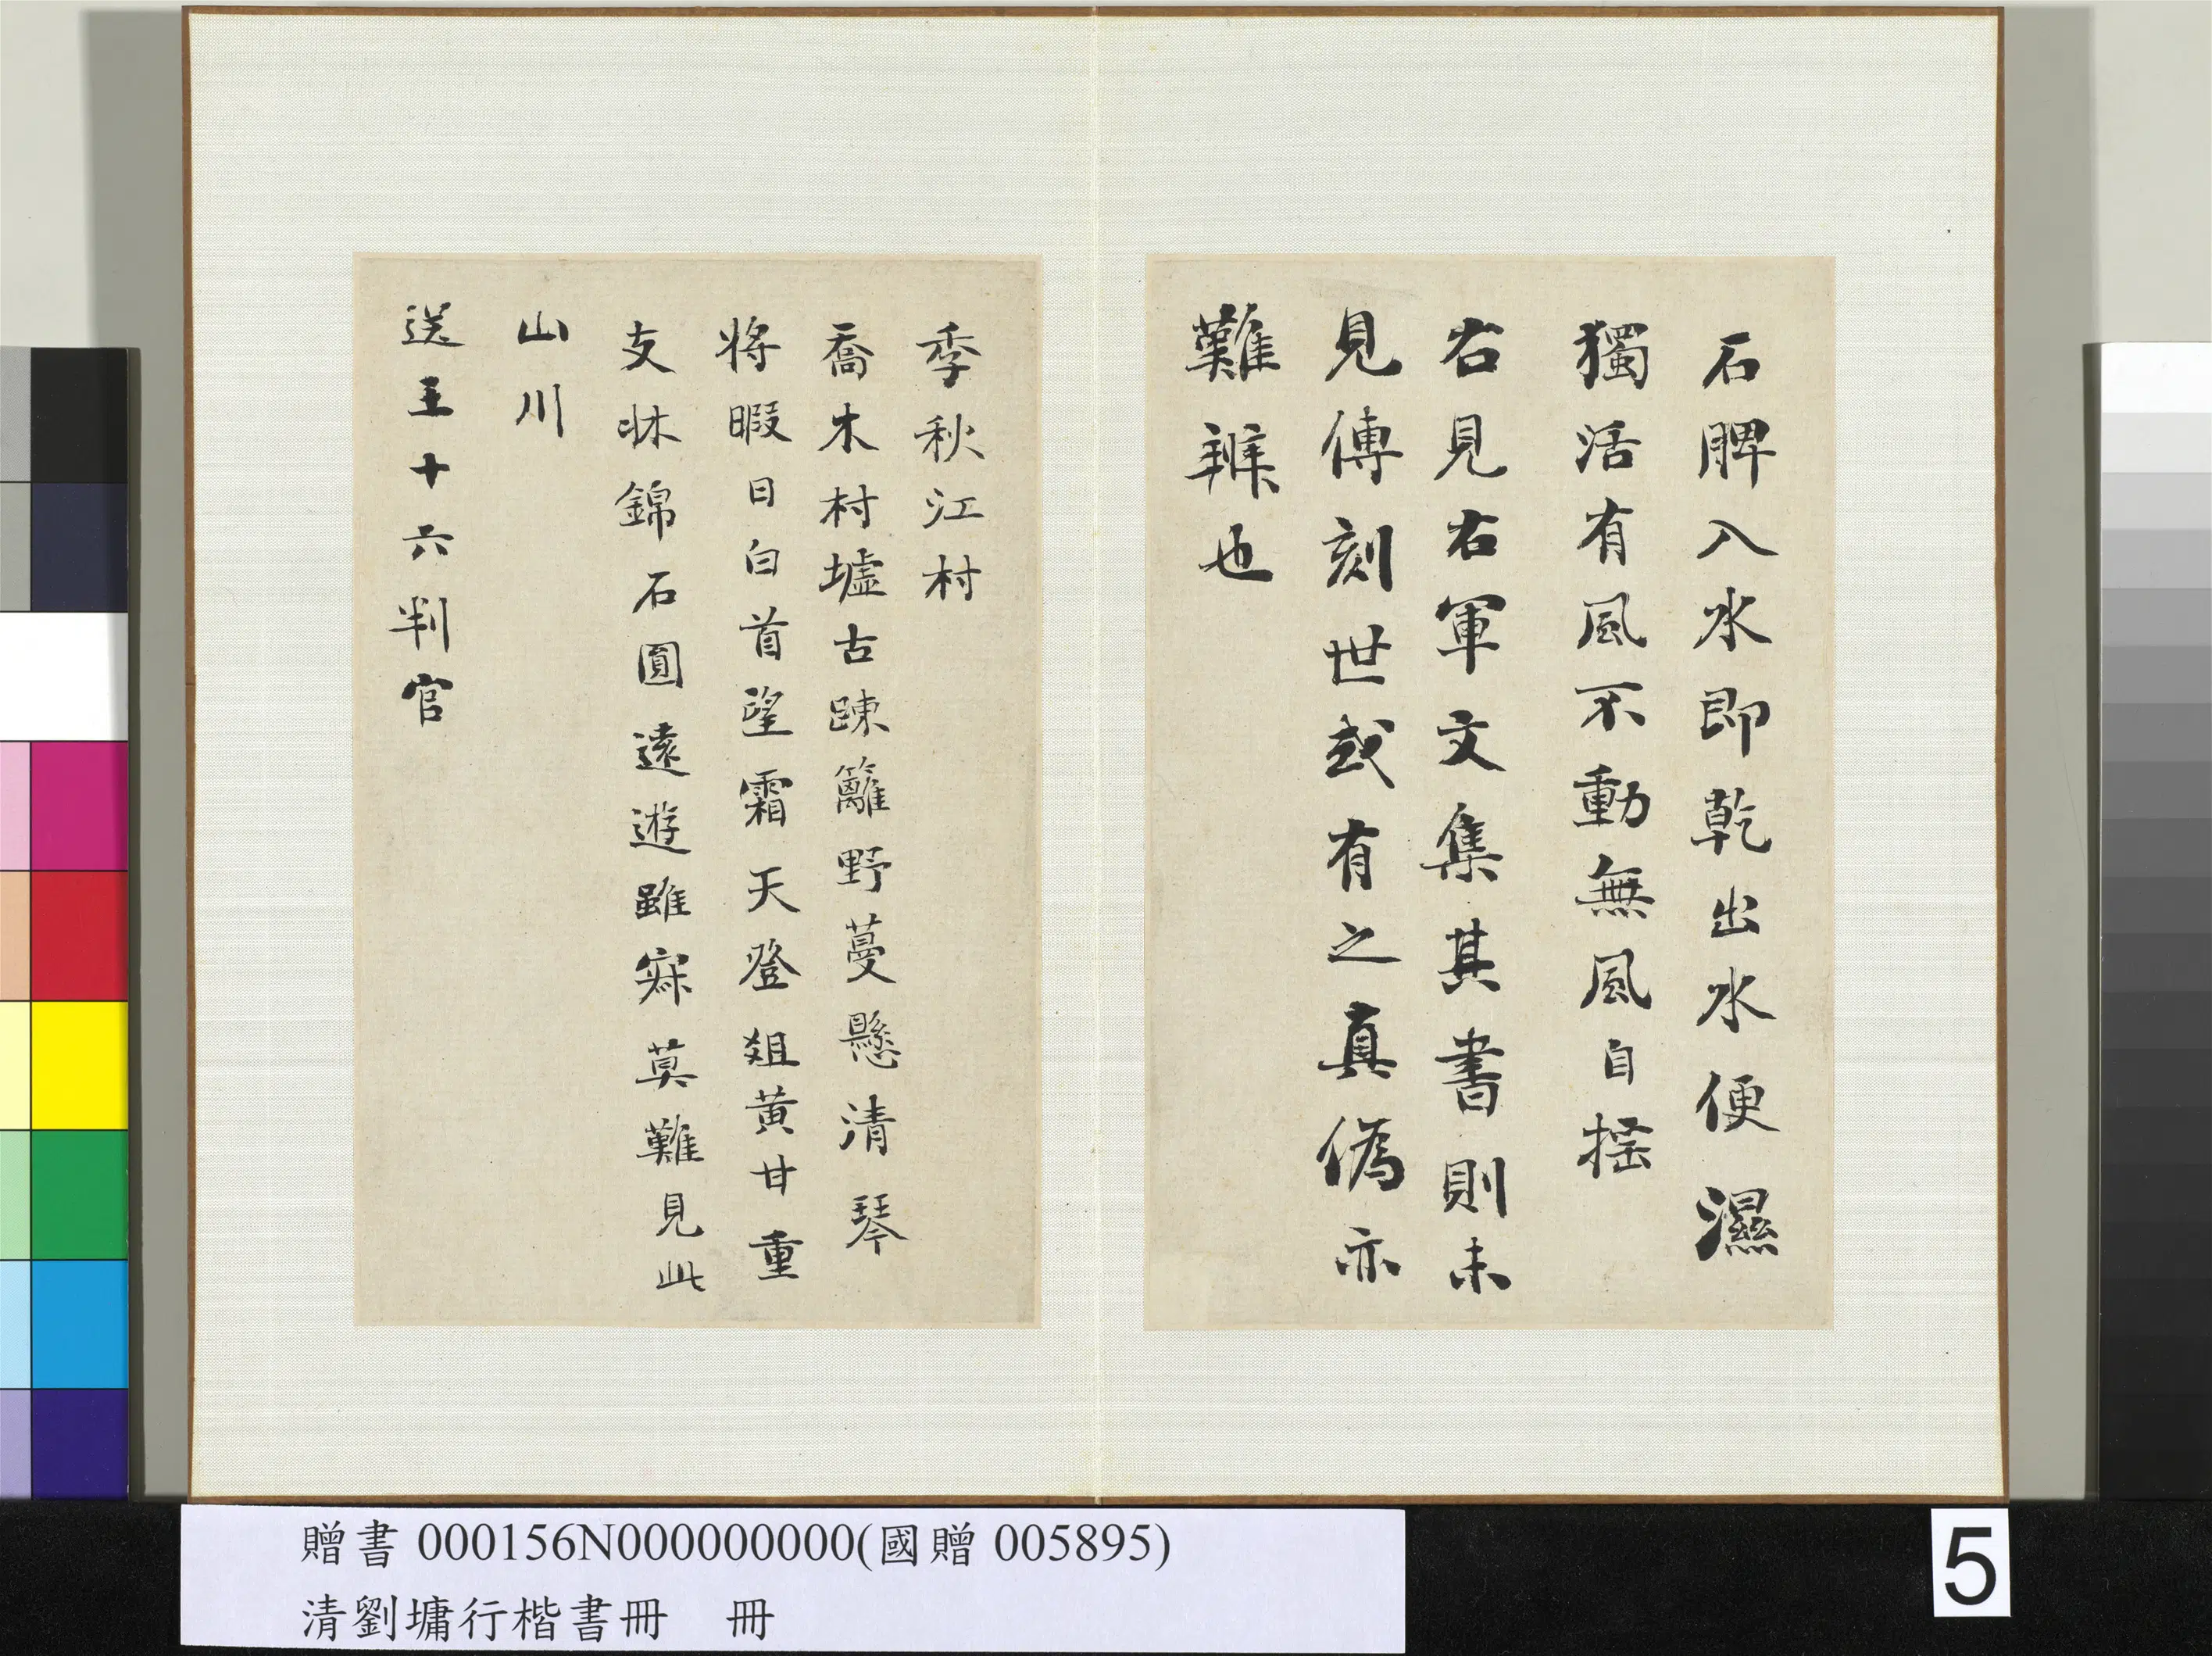 石脾入水即乾出水便濕
獨活有風不動無風自揺
右見右軍文集其書則未
見傳刻世或有之真偽亦
難辨也
季秋江村
喬木村墟古踈籬野蔓懸清琴
將暇日白首望霜天登俎黄甘重
支牀錦石圓遠遊雖寂莫難見此
山川
送王十六判官
贈書 000156N000000000(國贈 005895)
清劉墉行楷書冊 冊
5